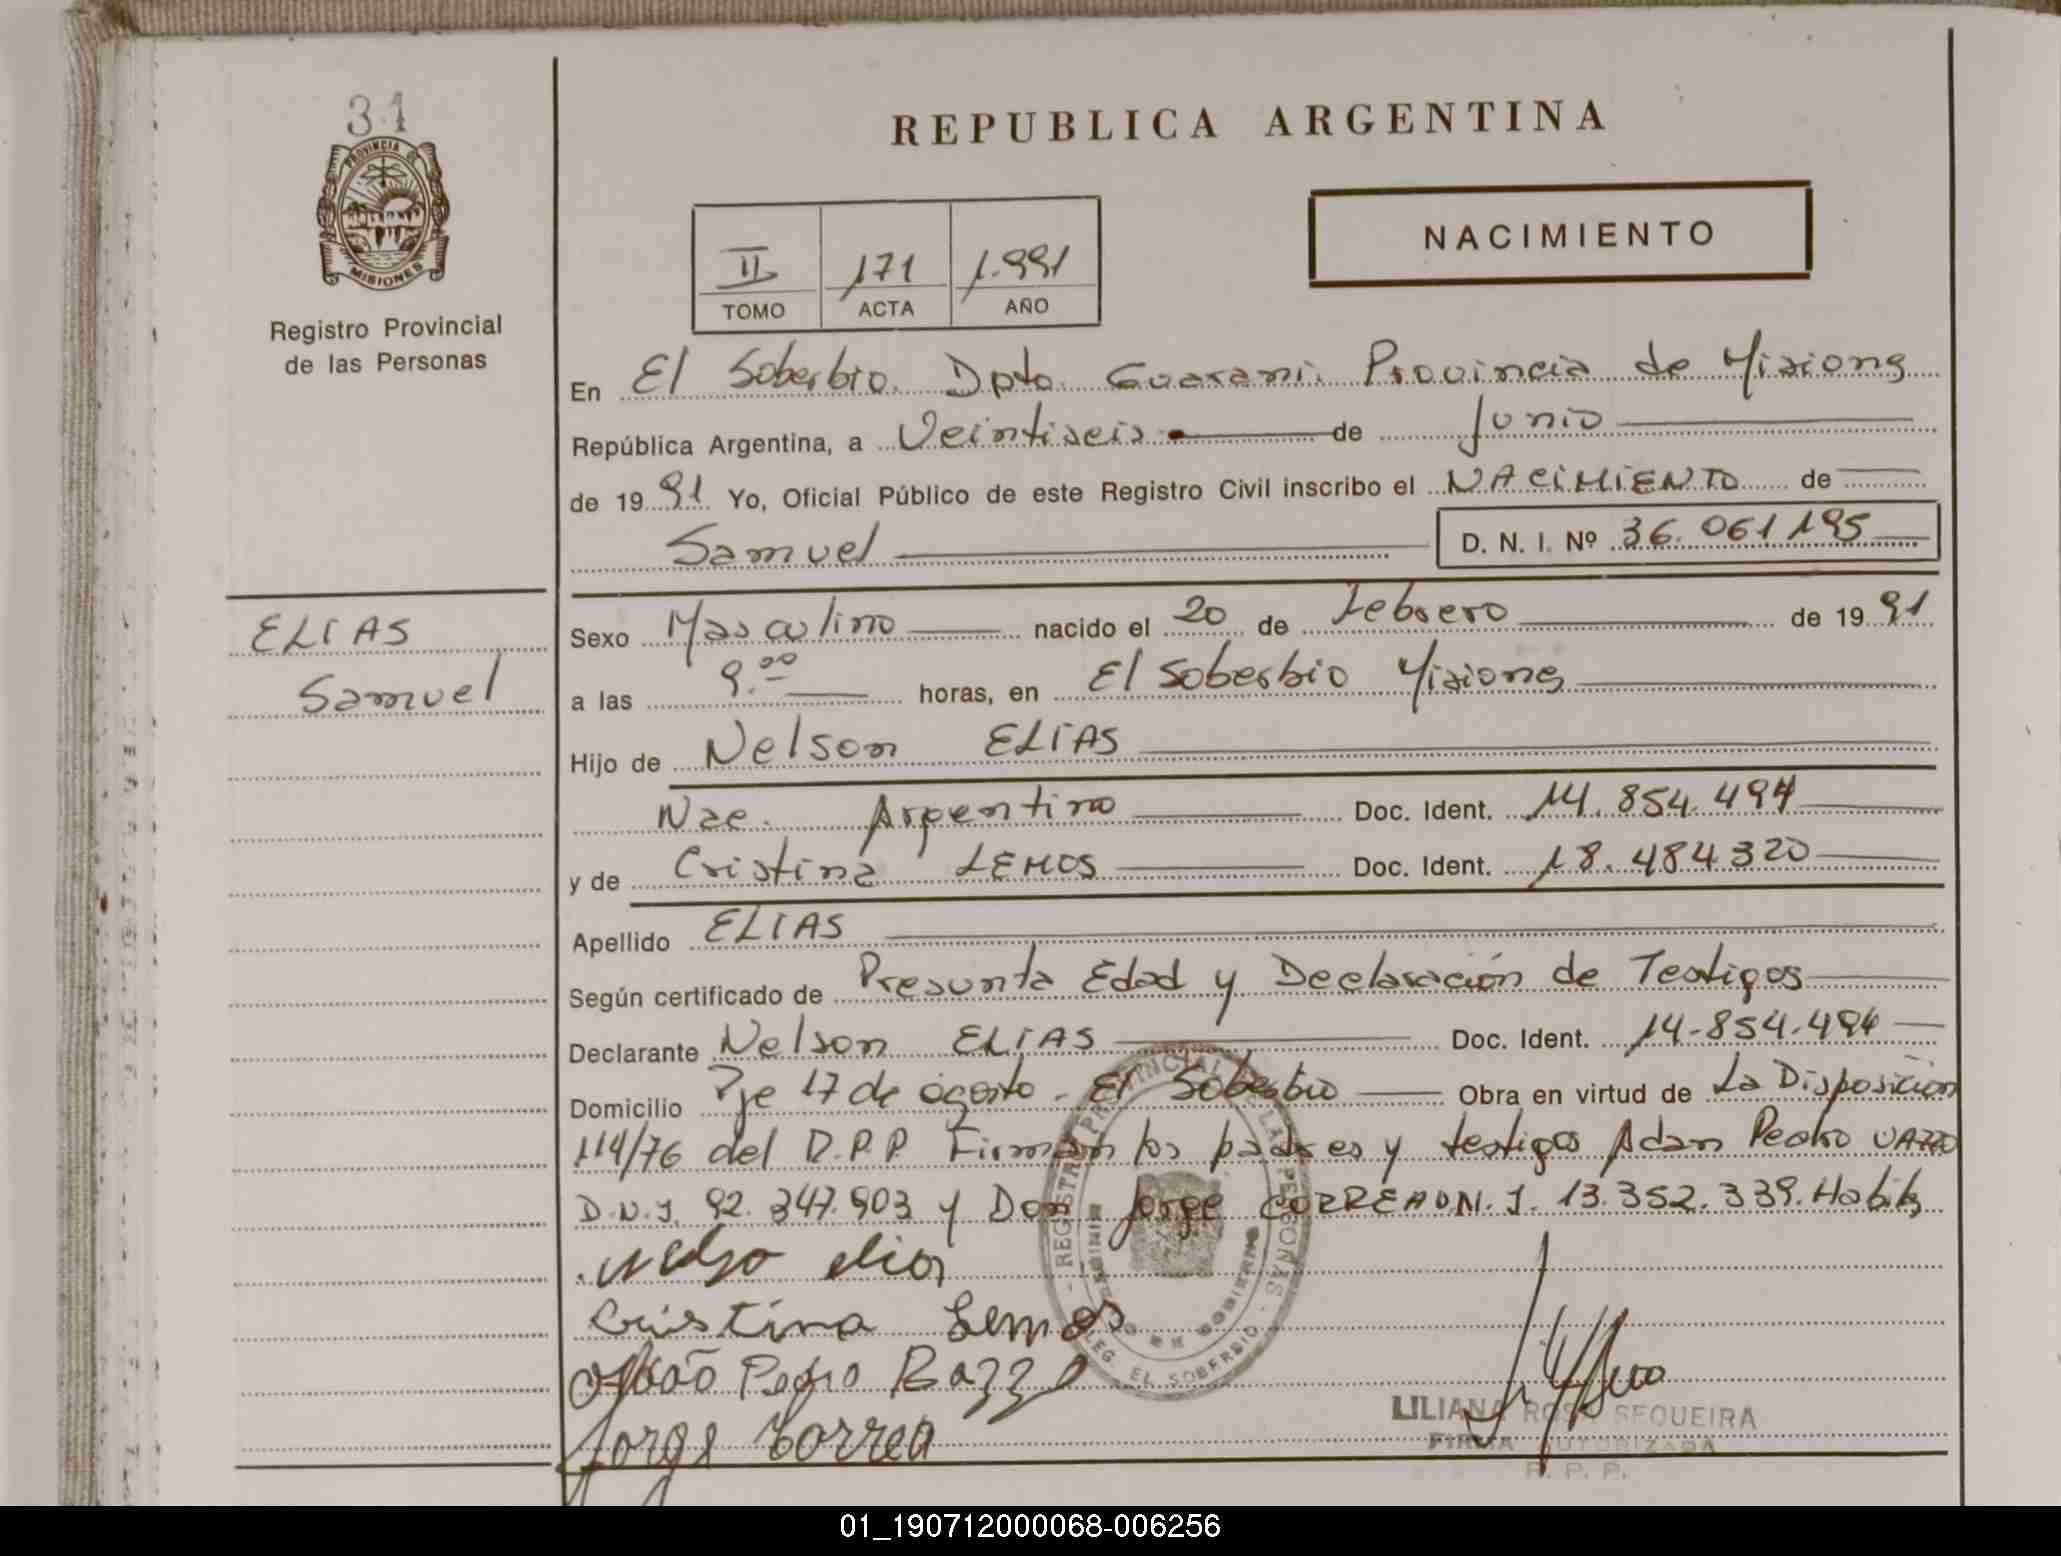 31
PROVINCIA DE
MISIONES
Registro Provincial
de las Personas
REPUBLICA ARGENTINA
II 171 1.991
TOMO ACTA AÑO
NACIMIENTO
En El Soberbio. Dpto. Guarani. Provincia de Misiones
República Argentina, a Veintiseis de Junio
de 1991 Yo, Oficial Público de este Registro Civil inscribo el NACIMIENTO de
Samuel D. N. I. Nº 36.061195
ELIAS
Samuel
Sexo Masculino nacido el 20 de Febrero de 1991
a las 9.00 horas, en El Soberbio Misiones
Hijo de Nelson ELIAS
Nac. Argentino Doc. Ident. 14.854.494
y de Cristina LEMOS Doc. Ident. 18.484.320
Apellido ELIAS
Según certificado de Presunta Edad y Declaración de Testigos
Declarante Nelson ELIAS Doc. Ident. 14-854-494
Domicilio Pje 17 de agosto - El Soberbio Obra en virtud de La Disposición
114/76 del D.P.P Firman los padres y testigos Adan Pedro VAZZO
D.N.I. 92.347.903 y Don Jorge CORREA D.N.I. 13.352.339. Habiles
Nelso elias
Cristina Lemos
João Pedro Bazzo
Jorge Correa
REGISTRO PROVINCIAL DE LAS PERSONAS
DELEG. EL SOBERBIO
MINISTERIO DE GOBIERNO
LILIANA ROSA SEQUEIRA
FIRMA AUTORIZADA
R. P. P.
01_190712000068-006256